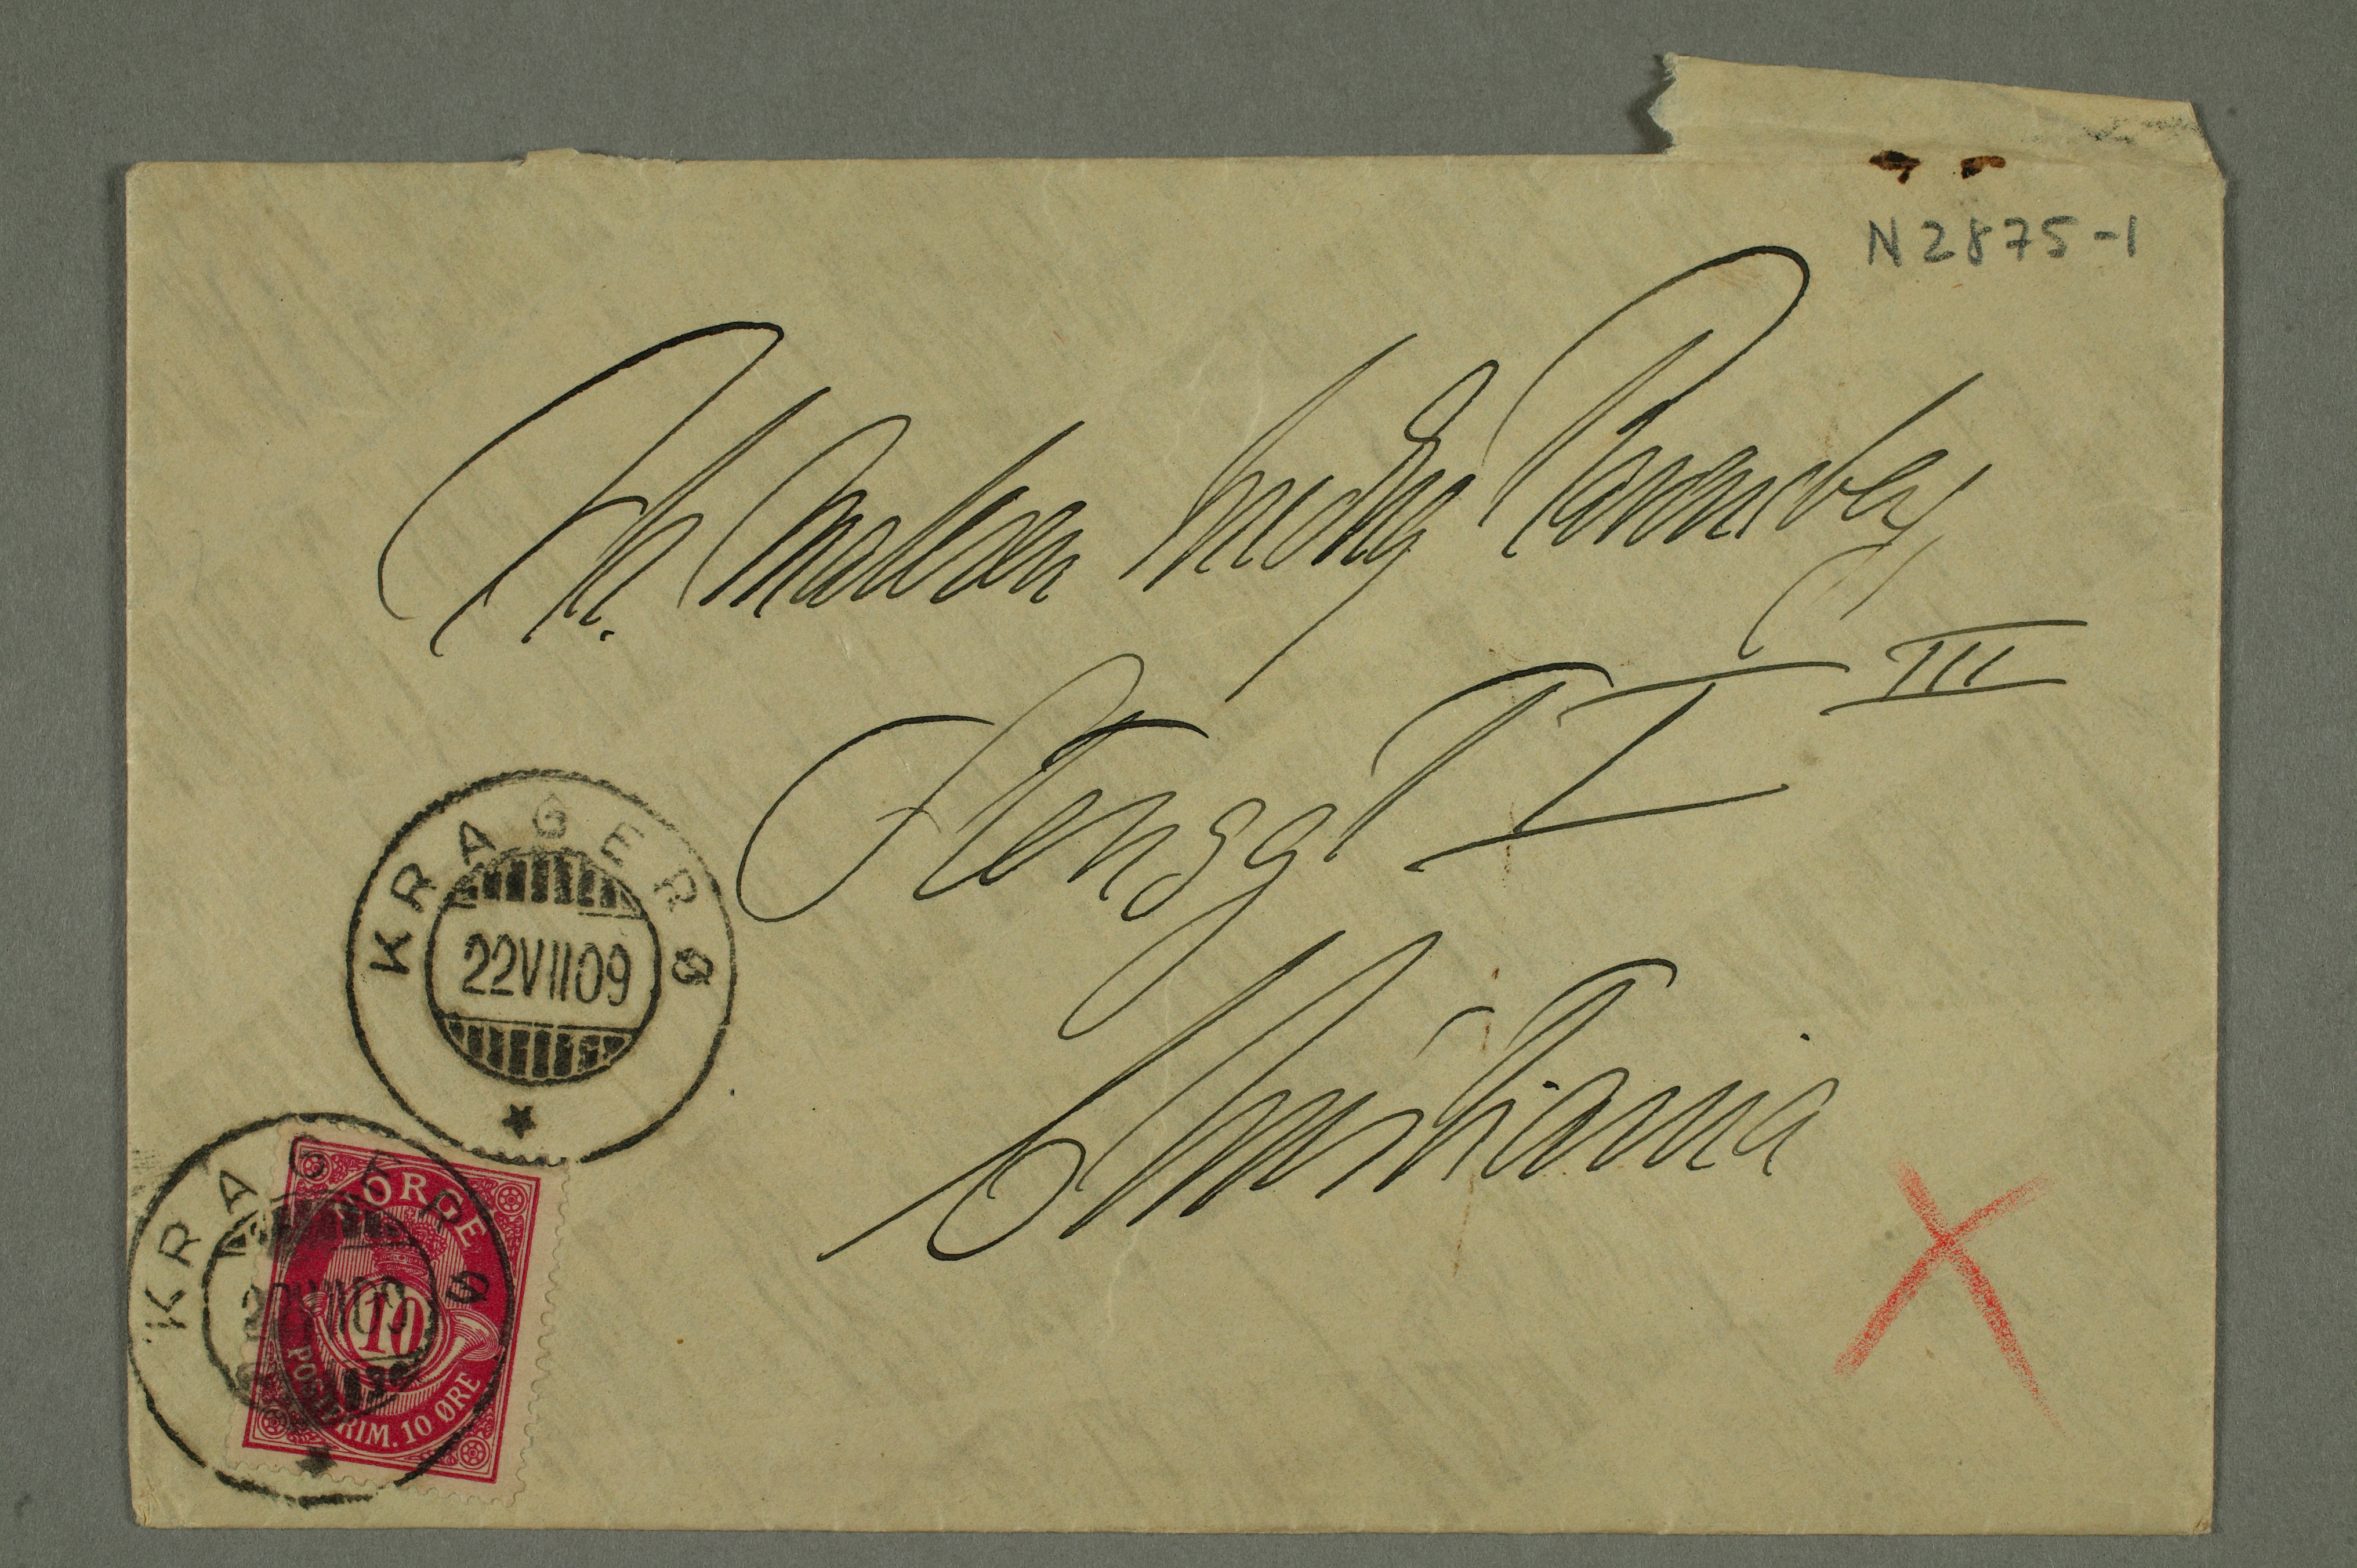 N 2875-1
Hr. Maleren Ludvig Ravensberg
Stensgt I III
Kristiania
KRAGERØ
22 VII 09
KRAGERØ
22 VII 09
NORGE
10
POSTFRIM. 10 ØRE